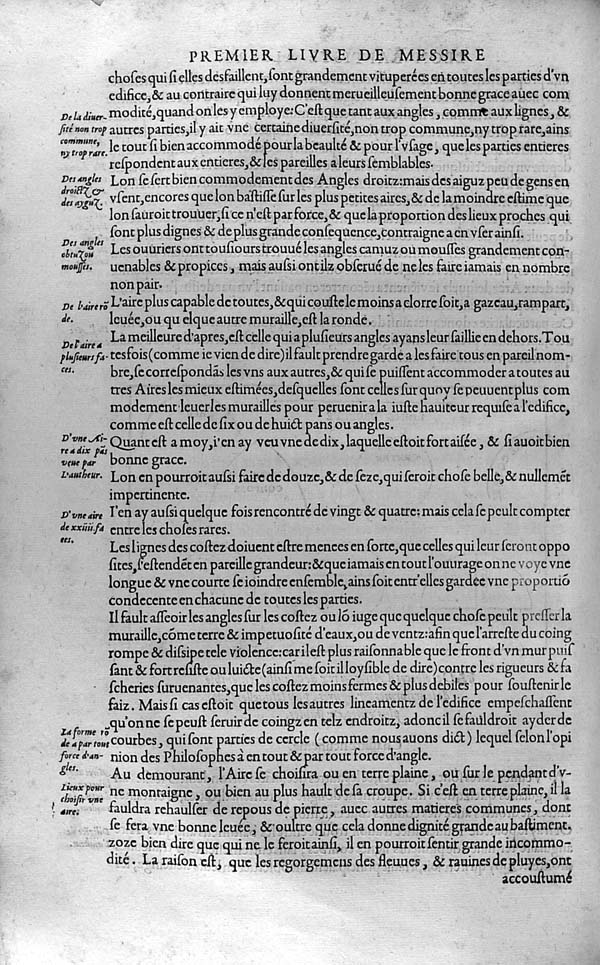 PREMIER LIVRE DE MESSIRE
choſes qui ſi elles deſfaillent, ſont grandement vituperées en toutes les parties d'vn
edifice, & au contraire qui luy donnent merueilleuſement bonne grace auec com
De la diuer- modité, quand on les y employe: C'eſt que tant aux angles, comme aux lignes, &
ſité non trop autres parties, il y ait vne certaine diuerſité, non trop commune, ny trop rare, ains
commune, le tout ſi bien accommodé pour la beaulté & pour l'vſage, que les parties entieres
ny trop rare. reſpondent aux entieres, & les pareilles a leurs ſemblables.
Des angles Lon ſe ſert bien commodement des Angles droitz: mais des aiguz peu de gens en
droictz & vſent, encores que lon baſtiſſe ſur les plus petites aires, & de la moindre eſtime que
des ayguz. lon ſauroit trouuer, ſi ce n'eſt par force, & que la proportion des lieux proches qui
ſont plus dignes & de plus grande conſequence, contraigne a en vſer ainſi.
Des angles Les ouuriers ont touſiours trouué les angles camuz ou mouſſes grandement con-
obtuz ou uenables & propices, mais auſſi ont ilz obſerué de ne les faire iamais en nombre
mouſſes. non pair.
De l'aire rō L'aire plus capable de toutes, & qui couſte le moins a clorre ſoit, a gazeau, rampart,
de. leuée, ou qu elque autre muraille, eſt la ronde.
La meilleure d'apres, eſt celle qui a pluſieurs angles ayans leur ſaillie en dehors. Tou
De l'aire a tesfois (comme ie vien de dire) il fault prendre garde a les faire tous en pareil nom-
pluſieurs fa- bre, ſe correſpondās les vns aux autres, & qui ſe puiſſent accommoder a toutes au
ces. tres Aires les mieux eſtimées, deſquelles ſont celles ſur quoy ſe peuuent plus com
modement leuer les murailles pour peruenir a la iuſte haulteur requiſe a l'edifice,
comme eſt celle de ſix ou de huict pans ou angles.
D'vne Ai- Quant eſt a moy, i'en ay veu vne de dix, laquelle eſtoit fort aiſée, & ſi auoit bien
re a dix pās
veue par bonne grace.
L'autheur. Lon en pourroit auſſi faire de douze, & de ſeze, qui ſeroit choſe belle, & nullemēt
impertinente.
D'vne aire I'en ay auſſi quelque fois rencontré de vingt & quatre: mais cela ſe peult compter
de xxiiii. fa entre les choſes rares.
ces.
Les lignes des coſtez doiuent eſtre menees en ſorte, que celles qui leur ſeront oppo
ſites, ſ'eſtendēt en pareille grandeur: & que iamais en tout l'ouurage on ne voye vne
longue & vne courte ſe ioindre enſemble, ains ſoit entr'elles gardee vne proportiō
condecente en chacune de toutes les parties.
Il fault aſſeoir les angles ſur les coſtez ou lō iuge que quelque choſe peult preſſer la
muraille, cōme terre & impetuoſité d'eaux, ou de ventz: afin que l'arreſte du coing
rompe & diſſipe tele violence: car il eſt plus raiſonnable que le front d'vn mur puiſ
ſant & fort reſiſte ou luicte (ainſi me ſoit il loyſible de dire) contre les rigueurs & fa
ſcheries ſuruenantes, que les coſtez moins fermes & plus debiles pour ſouſtenir le
faiz. Mais ſi cas eſtoit que tous les autres lineamentz de l'edifice empeſchaſſent
La forme rō qu'on ne ſe peuſt ſeruir de coingz en telz endroitz, adonc il ſe fauldroit ayder de
de a par tout courbes, qui ſont parties de cercle (comme nous auons dict) lequel ſelon l'opi
force d'an- nion des Philoſophes à en tout & par tout force d'angle.
gles.
Au demourant, l'Aire ſe choiſira ou en terre plaine, ou ſur le pendant d'v-
Lieux pour ne montaigne, ou bien au plus hault de ſa croupe. Si c'eſt en terre plaine, il la
choiſir vne fauldra rehaulſer de repous de pierre, auec autres matieres communes, dont
aire. ſe fera vne bonne leuée, & oultre que cela donne dignité grande au baſtiment.
zoze bien dire que qui ne le feroit ainſi, il en pourroit ſentir grande incommo-
dité. La raiſon eſt, que les regorgemens des fleuues, & rauines de pluyes, ont
accouſtumé